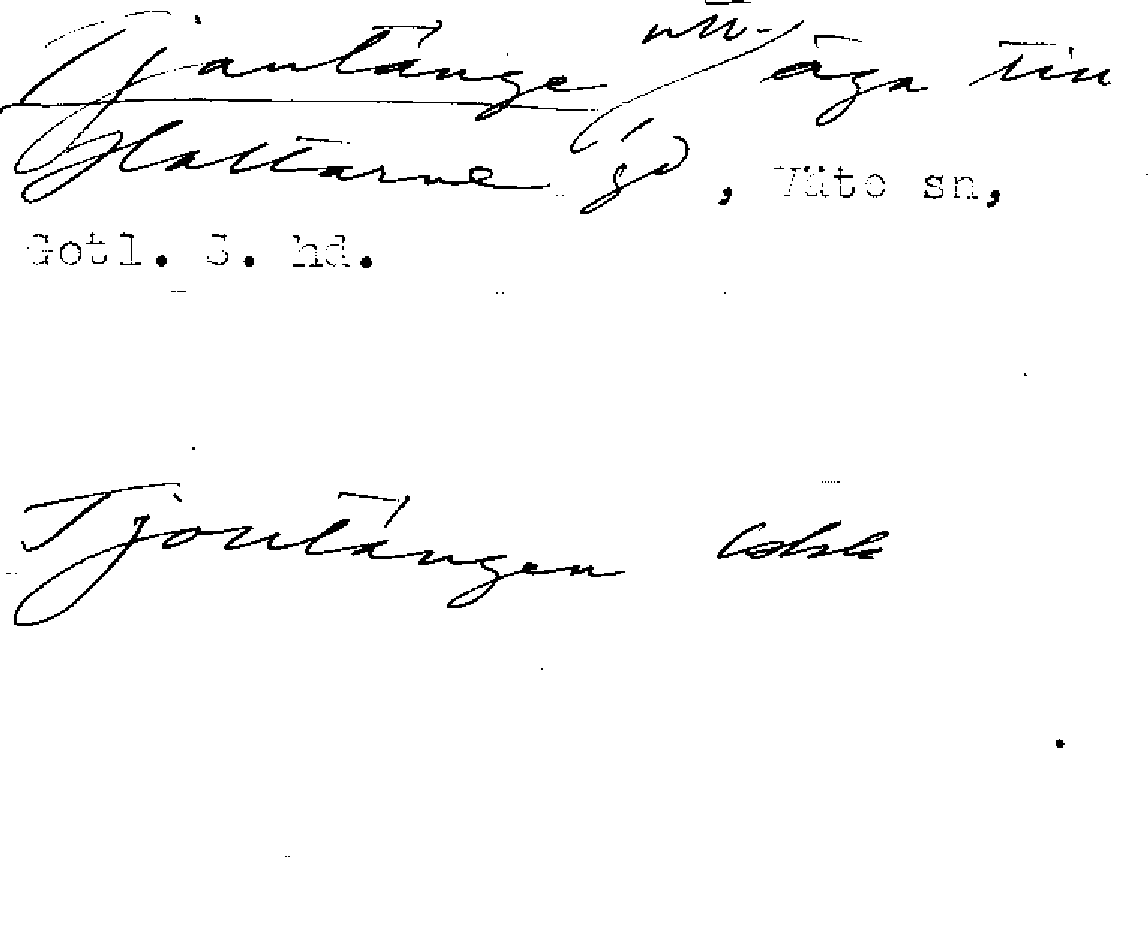 Tjautänge äga till
Hallarve gd, Väte sn,
Gotl. S. hd.
Tjoutängen